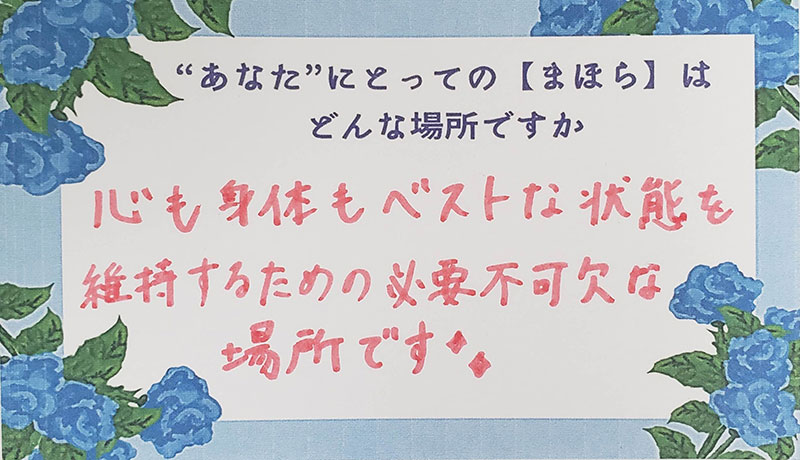 “あなた”にとっての【まほら】は
どんな場所ですか
心も身体もベストな状態を
維持するための必要不可欠な
場所です